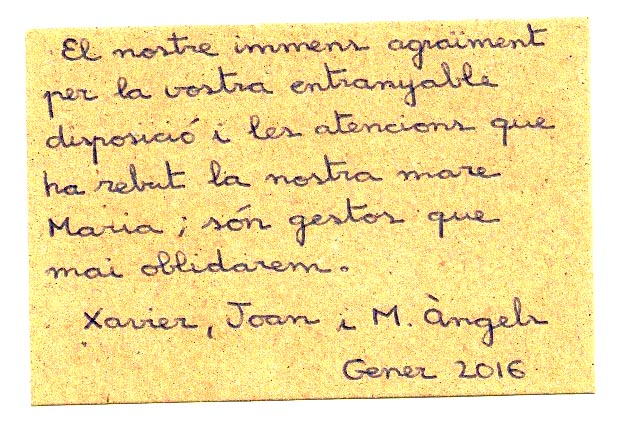 El nostre immens agraïment
per la vostra entranyable
disposició i les atencions que
ha rebut la nostra mare
Maria; són gestos que
mai oblidarem.
Xavier, Joan i M. Àngels
Gener 2016